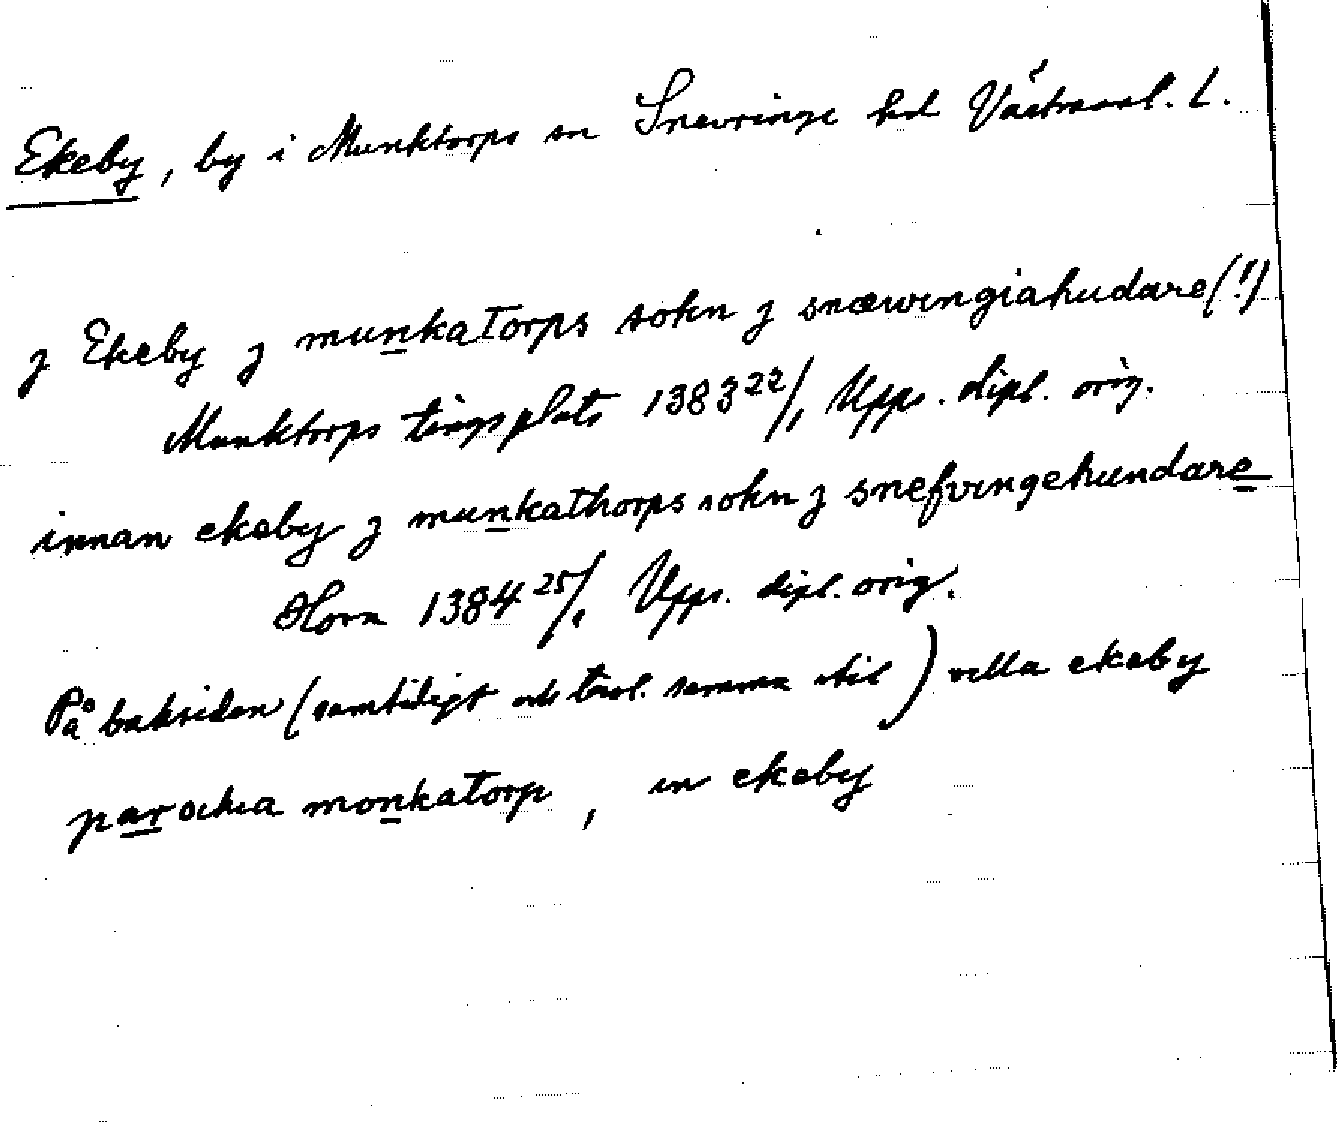 Ekeby, by i Munktorps sn Snevringe hd Västmanl. L.
j Ekeby j munkatorps sokn j snæwingiahudare (!)
Munktorps tingsplats 1383 22/1 Upps. dipl. orig.
innan ekeby j munkathorps sokn j snefvingehundare
Horn 1384 25/1 Upps. dipl. orig.
På baksidan (samtidigt och trol. samma stil) villa ekeby
parochia monkatorp, in ekeby